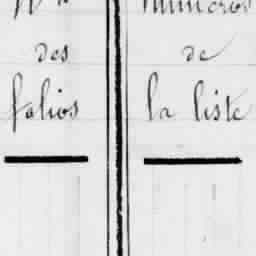 Nos
des
folios
Numéros
de
la liste